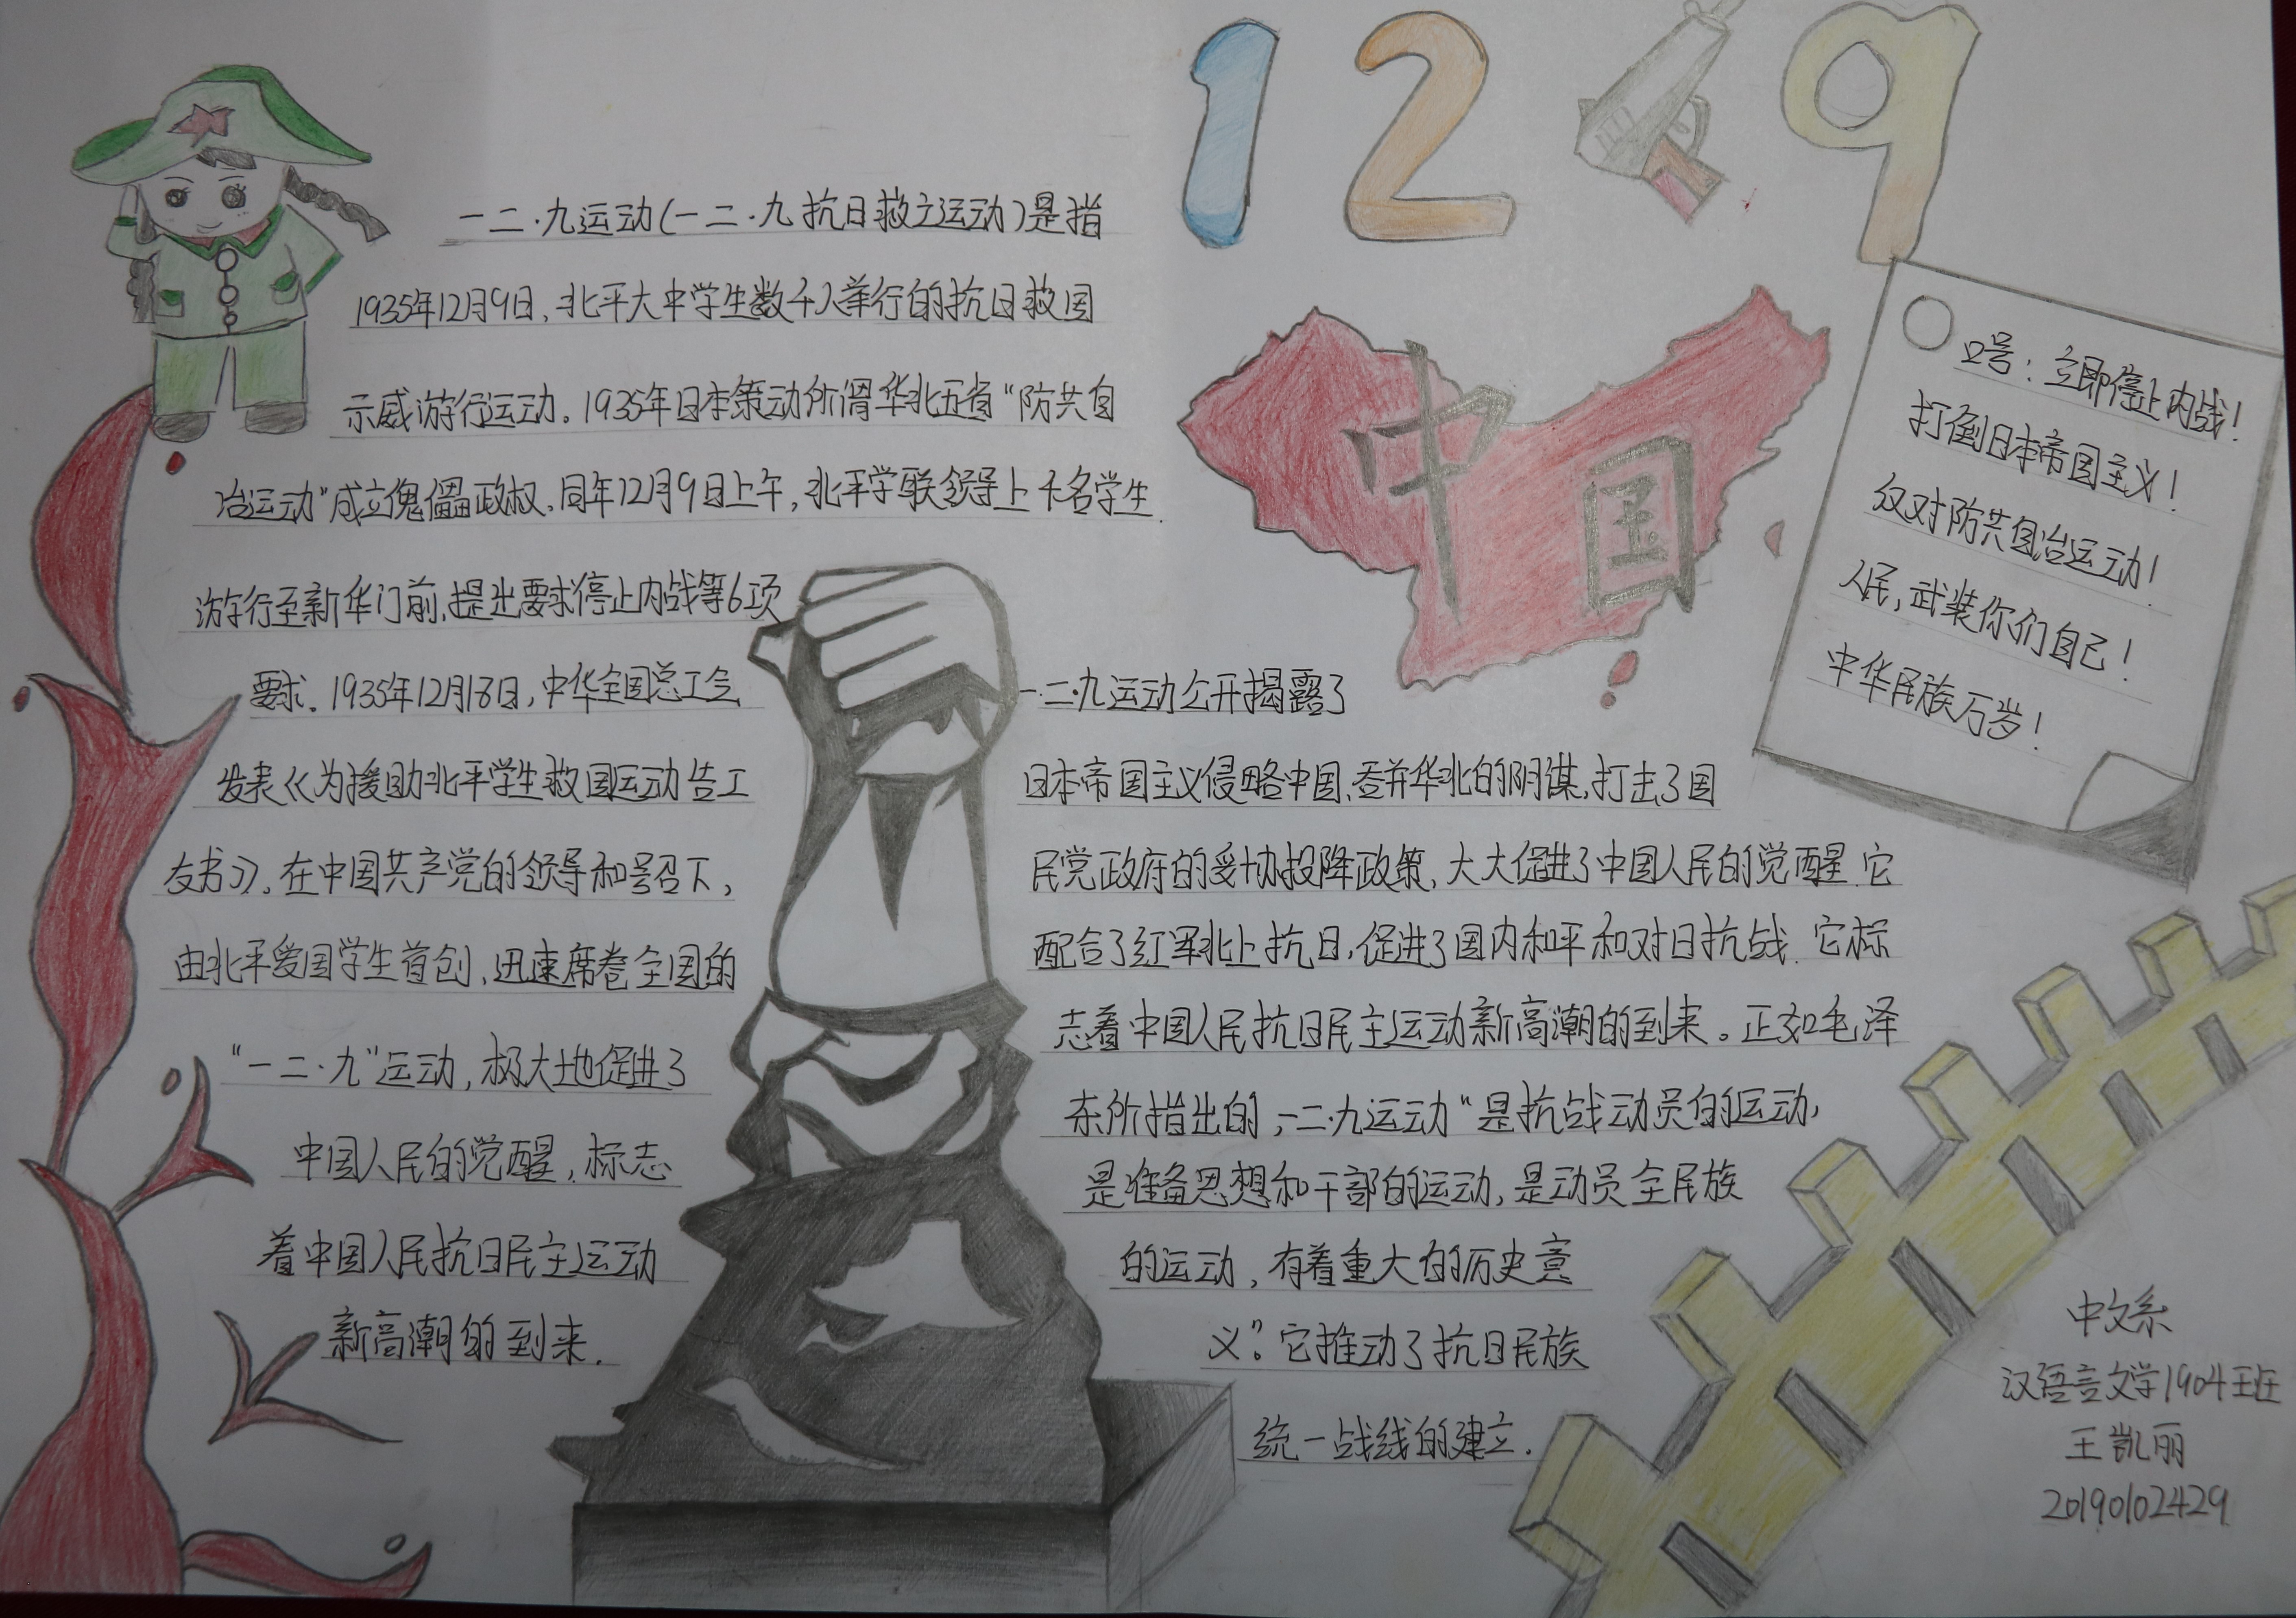 12 9
一二·九运动(一二·九抗日救亡运动)是指
1935年12月9日,北平大中学生数千人举行的抗日救国
示威游行运动。1935年日本策动所谓华北五省“防共自
治运动”成立傀儡政权,同年12月9日上午,北平学联领导上千名学生
游行至新华门前,提出要求停止内战等6项
要求。1935年12月18日,中华全国总工会
发表《为援助北平学生救国运动告工
友书》。在中国共产党的领导和号召下,
由北平爱国学生首创,迅速席卷全国的
“一二·九”运动,极大地促进了
中国人民的觉醒,标志
着中国人民抗日民主运动
新高潮的到来.
中国
一·二·九运动公开揭露了
日本帝国主义侵略中国、吞并华北的阴谋,打击了国
民党政府的妥协投降政策,大大促进了中国人民的觉醒.它
配合了红军北上抗日,促进了国内和平和对日抗战.它标
志着中国人民抗日民主运动新高潮的到来。正如毛泽
东所指出的,一二·九运动“是抗战动员的运动,
是准备思想和干部的运动,是动员全民族
的运动,有着重大的历史意
义”。它推动了抗日民族
统一战线的建立.
口号:立即停止内战!
打倒日本帝国主义!
反对防共自治运动!
人民,武装你们自己!
中华民族万岁!
中文系
汉语言文学1904班
王凯丽
20190102429